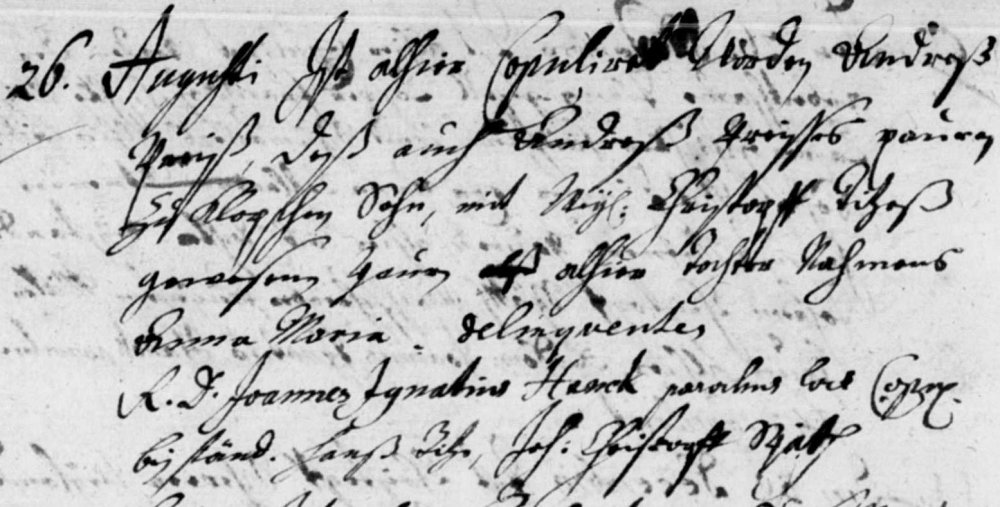 26. Augusti Ist alhier Copuliret Worden Andreß
Preiß, deß auch Andreß Preisses pauren
Zu Klopschen Sohn, mit Weyl: Christopff Titzeß
gewesenen pauren alhier tochter Nahmens
Anna Maria. delinquentes
R. D. Joannes Ignatius Hauck parochus loci Cop.
beyständ. Hanß Titz, Joh: Christopff Späth